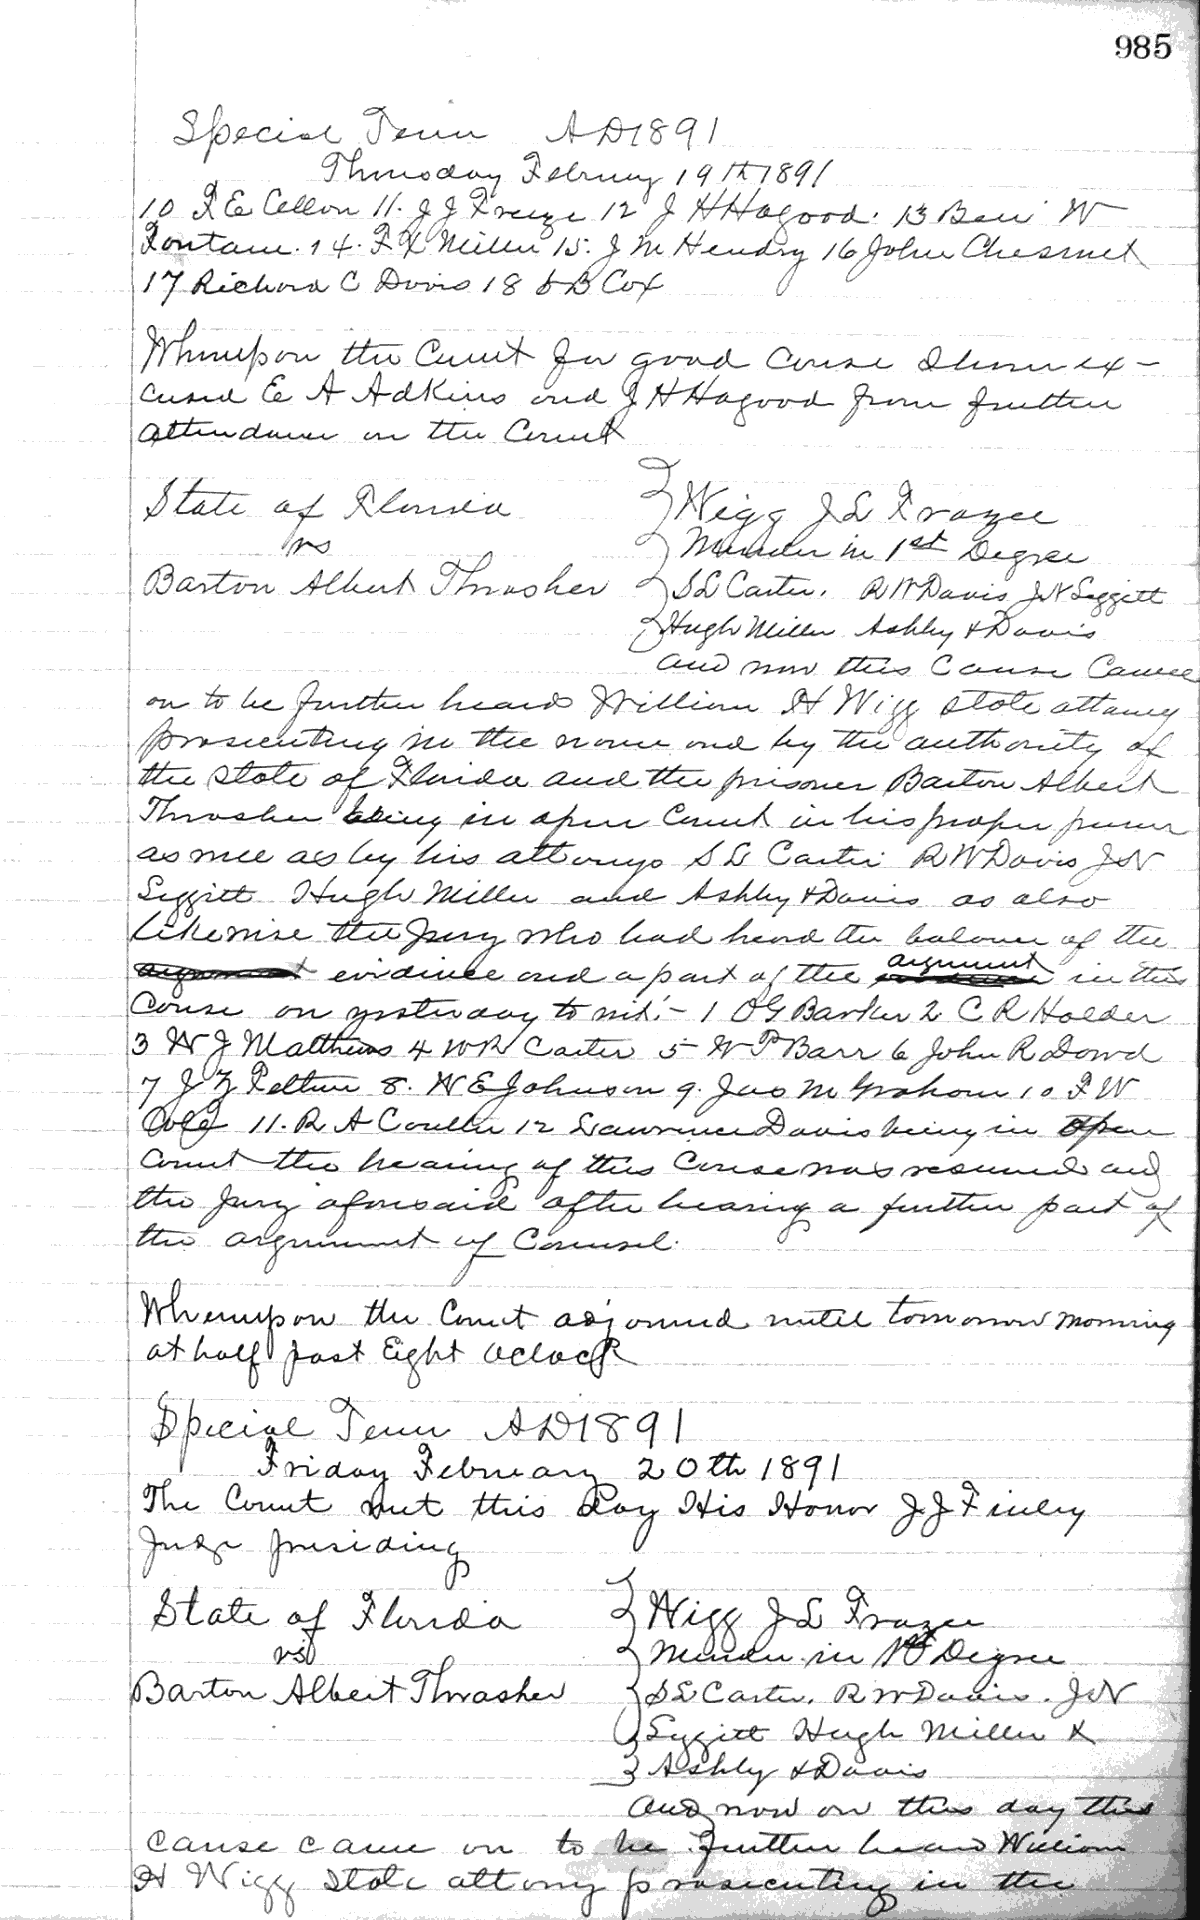 985
Special Term AD 1891
Thursday February 19th 1891
10 F E Cellon 11. J J Freeze 12 J H Hagood. 13 Ben W
Fontain. 14. F X Miller 15. J M Hendry 16 John Chesnut
17 Richard C Davis 18 B Cox
Whereupon the Court for good cause shown ex-
cused E A Adkins and J H Hagood from further
attendance on the Court
State of Florida
vs
Barton Albert Thrasher
Wigg J L Frazee
Murder in 1st Degree
S L Carter. R W Davis J N
Hugh Miller Ashby & Davis
and now this Cause Came
on to be further heard William H Wigg State attorney
prosecuting in the name and by the authority of
the State of Florida and the prisoner Barton Albert
Thrasher being in open Court in his proper person
as well as by his attorneys S L Carter R W Davis J N
Hugh Miller and Ashby & Davis as also
likewise the Jury who had heard the balance of the
argument evidence and a part of the argument in this
Cause on yesterday to wit:- 1 O G Barker 2 C R Holder
3 W J Matthews 4 W R Carter 5 W P Barr 6 John R Dowd
7 J Z 8. W E Johnson 9. Jas M Graham 10 F W
Cole 11. R A Coulter 12 Lawrence Davis being in open
Court the hearing of this Cause was resumed and
the Jury aforesaid after hearing a further part of
the argument of Counsel.
Whereupon the Court adjourned until tomorrow morning
at half past Eight oclock
Special Term AD 1891
Friday February 20th 1891
The Court met this Day His Honor J J Finley
Judge presiding
State of Florida
vs
Barton Albert Thrasher
Wigg J L Frazee
Murder in 1st Degree
S L Carter. R W Davis. J N
Hugh Miller &
Ashby & Davis
and now on this day this
cause came on to be further heard William
H Wigg State attorney prosecuting in the